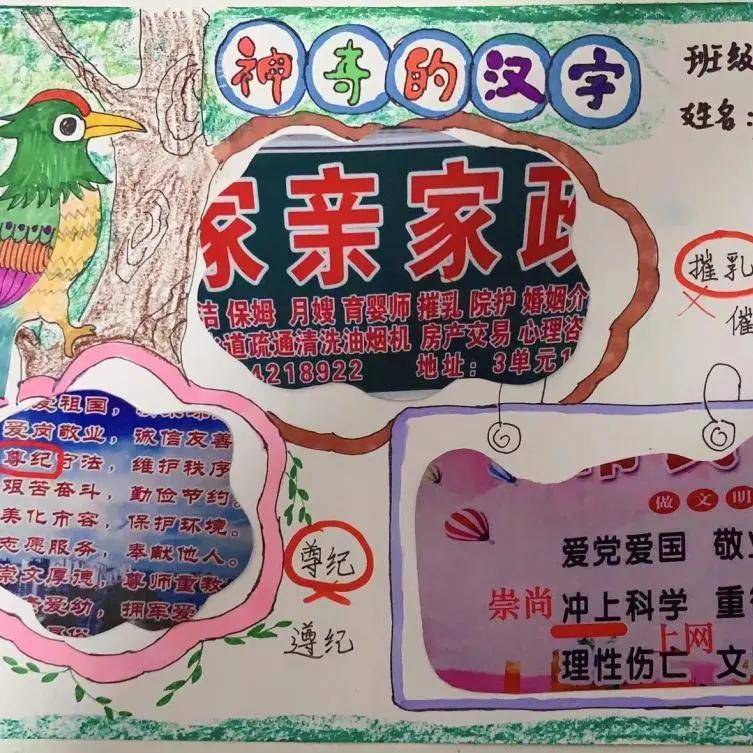 神奇的汉字
班级
姓名：
家亲家政
洁 保姆 月嫂 育婴师 摧乳 院护 婚姻介
道疏通清洗油烟机 房产交易 心理咨
4218922 地址：3单元1
摧乳
催
爱祖国，
爱岗敬业，诚信友善
尊纪守法，维护秩序
艰苦奋斗，勤俭节约。
美化市容，保护环境。
志愿服务，奉献他人。
崇文厚德，尊师重教
爱幼，拥军爱
尊纪
遵纪
做文明
爱党爱国 敬业
崇尚 冲上科学 重
上网
理性伤亡 文